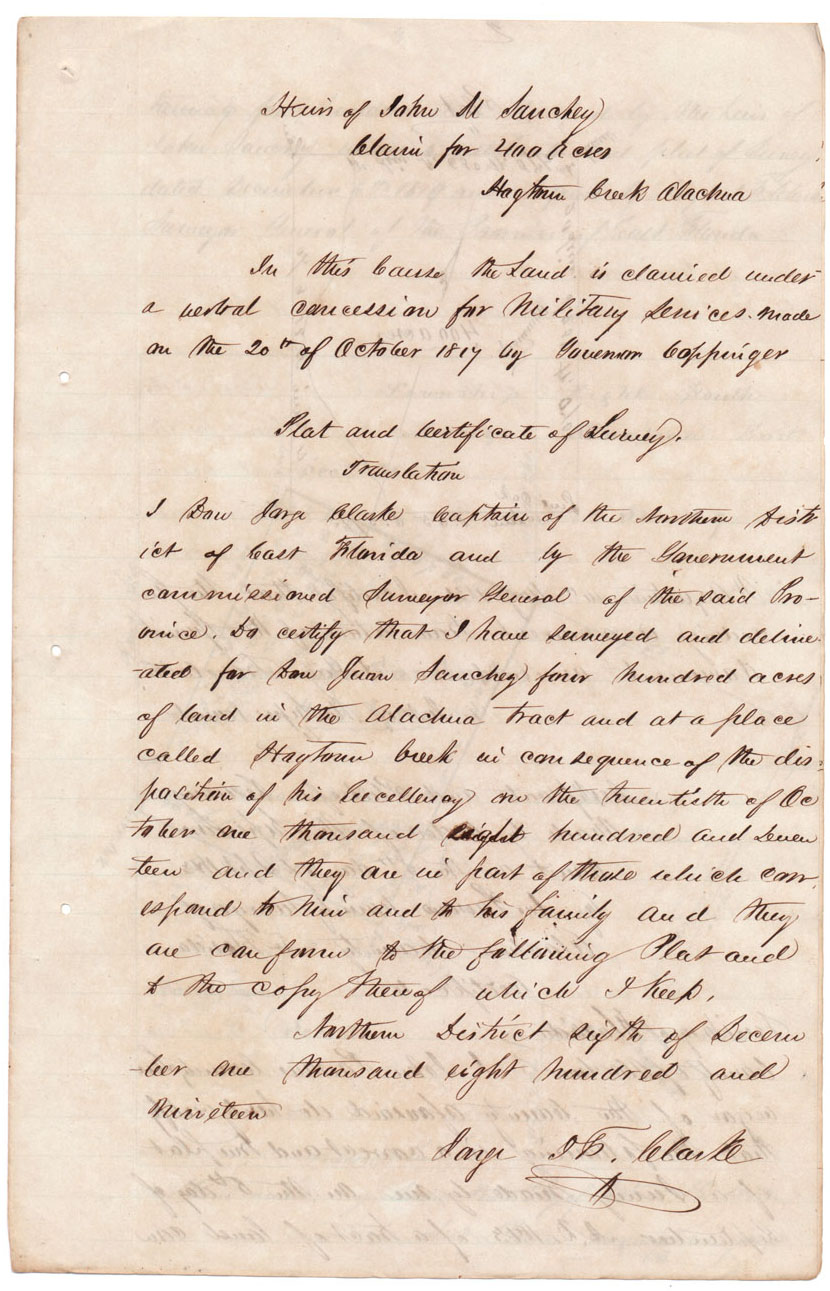 Heirs of John M Sanchez
Claim for 400 Acres
Hogtown Creek Alachua
In this Cause the Land is claimed under
a verbal concession for Military Services made
on the 20th of October 1817 by Governor Coppinger
Plat and Certificate of Survey.
Translation
I Don Jorge Clarke Captain of the Northern Distr
ict of East Florida and by the Government
commissioned Surveyor General of the said Pro-
vince. Do certify that I have surveyed and deline-
-ated for Don Juan Sanchez four hundred acres
of land in the Alachua tract and at a place
called Hogtown Creek in consequence of the dis-
position of his Excellency on the twentieth of Oc
tober one thousand eight hundred and seven
teen and they are in part of those which corr
espond to him and to his family and they
are conform to the following Plat and
to the copy thereof which I keep.
Northern District sixth of Decem
-ber one thousand eight hundred and
Nineteen
Jorge J F. Clarke